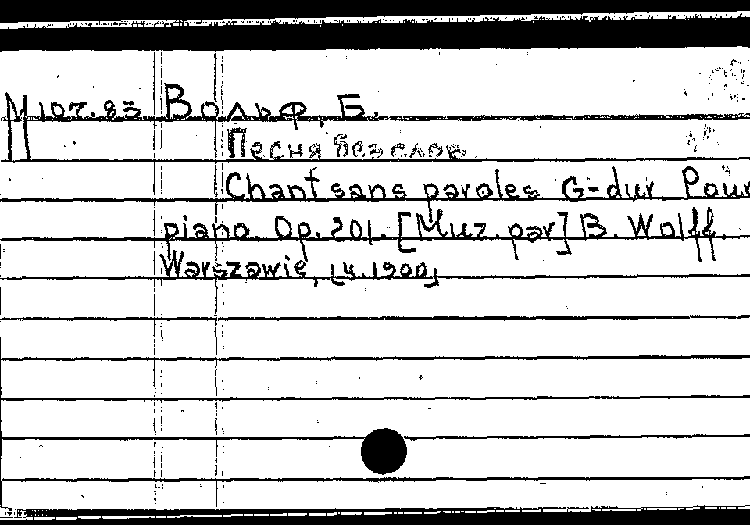 М 107.83 Вольф, Б.
Песня без слов
Chant sans paroles G-dur. Pour
piano. Op. 201. [Muz. par] B. Wolff.
Warszawie, [ч. 1900]